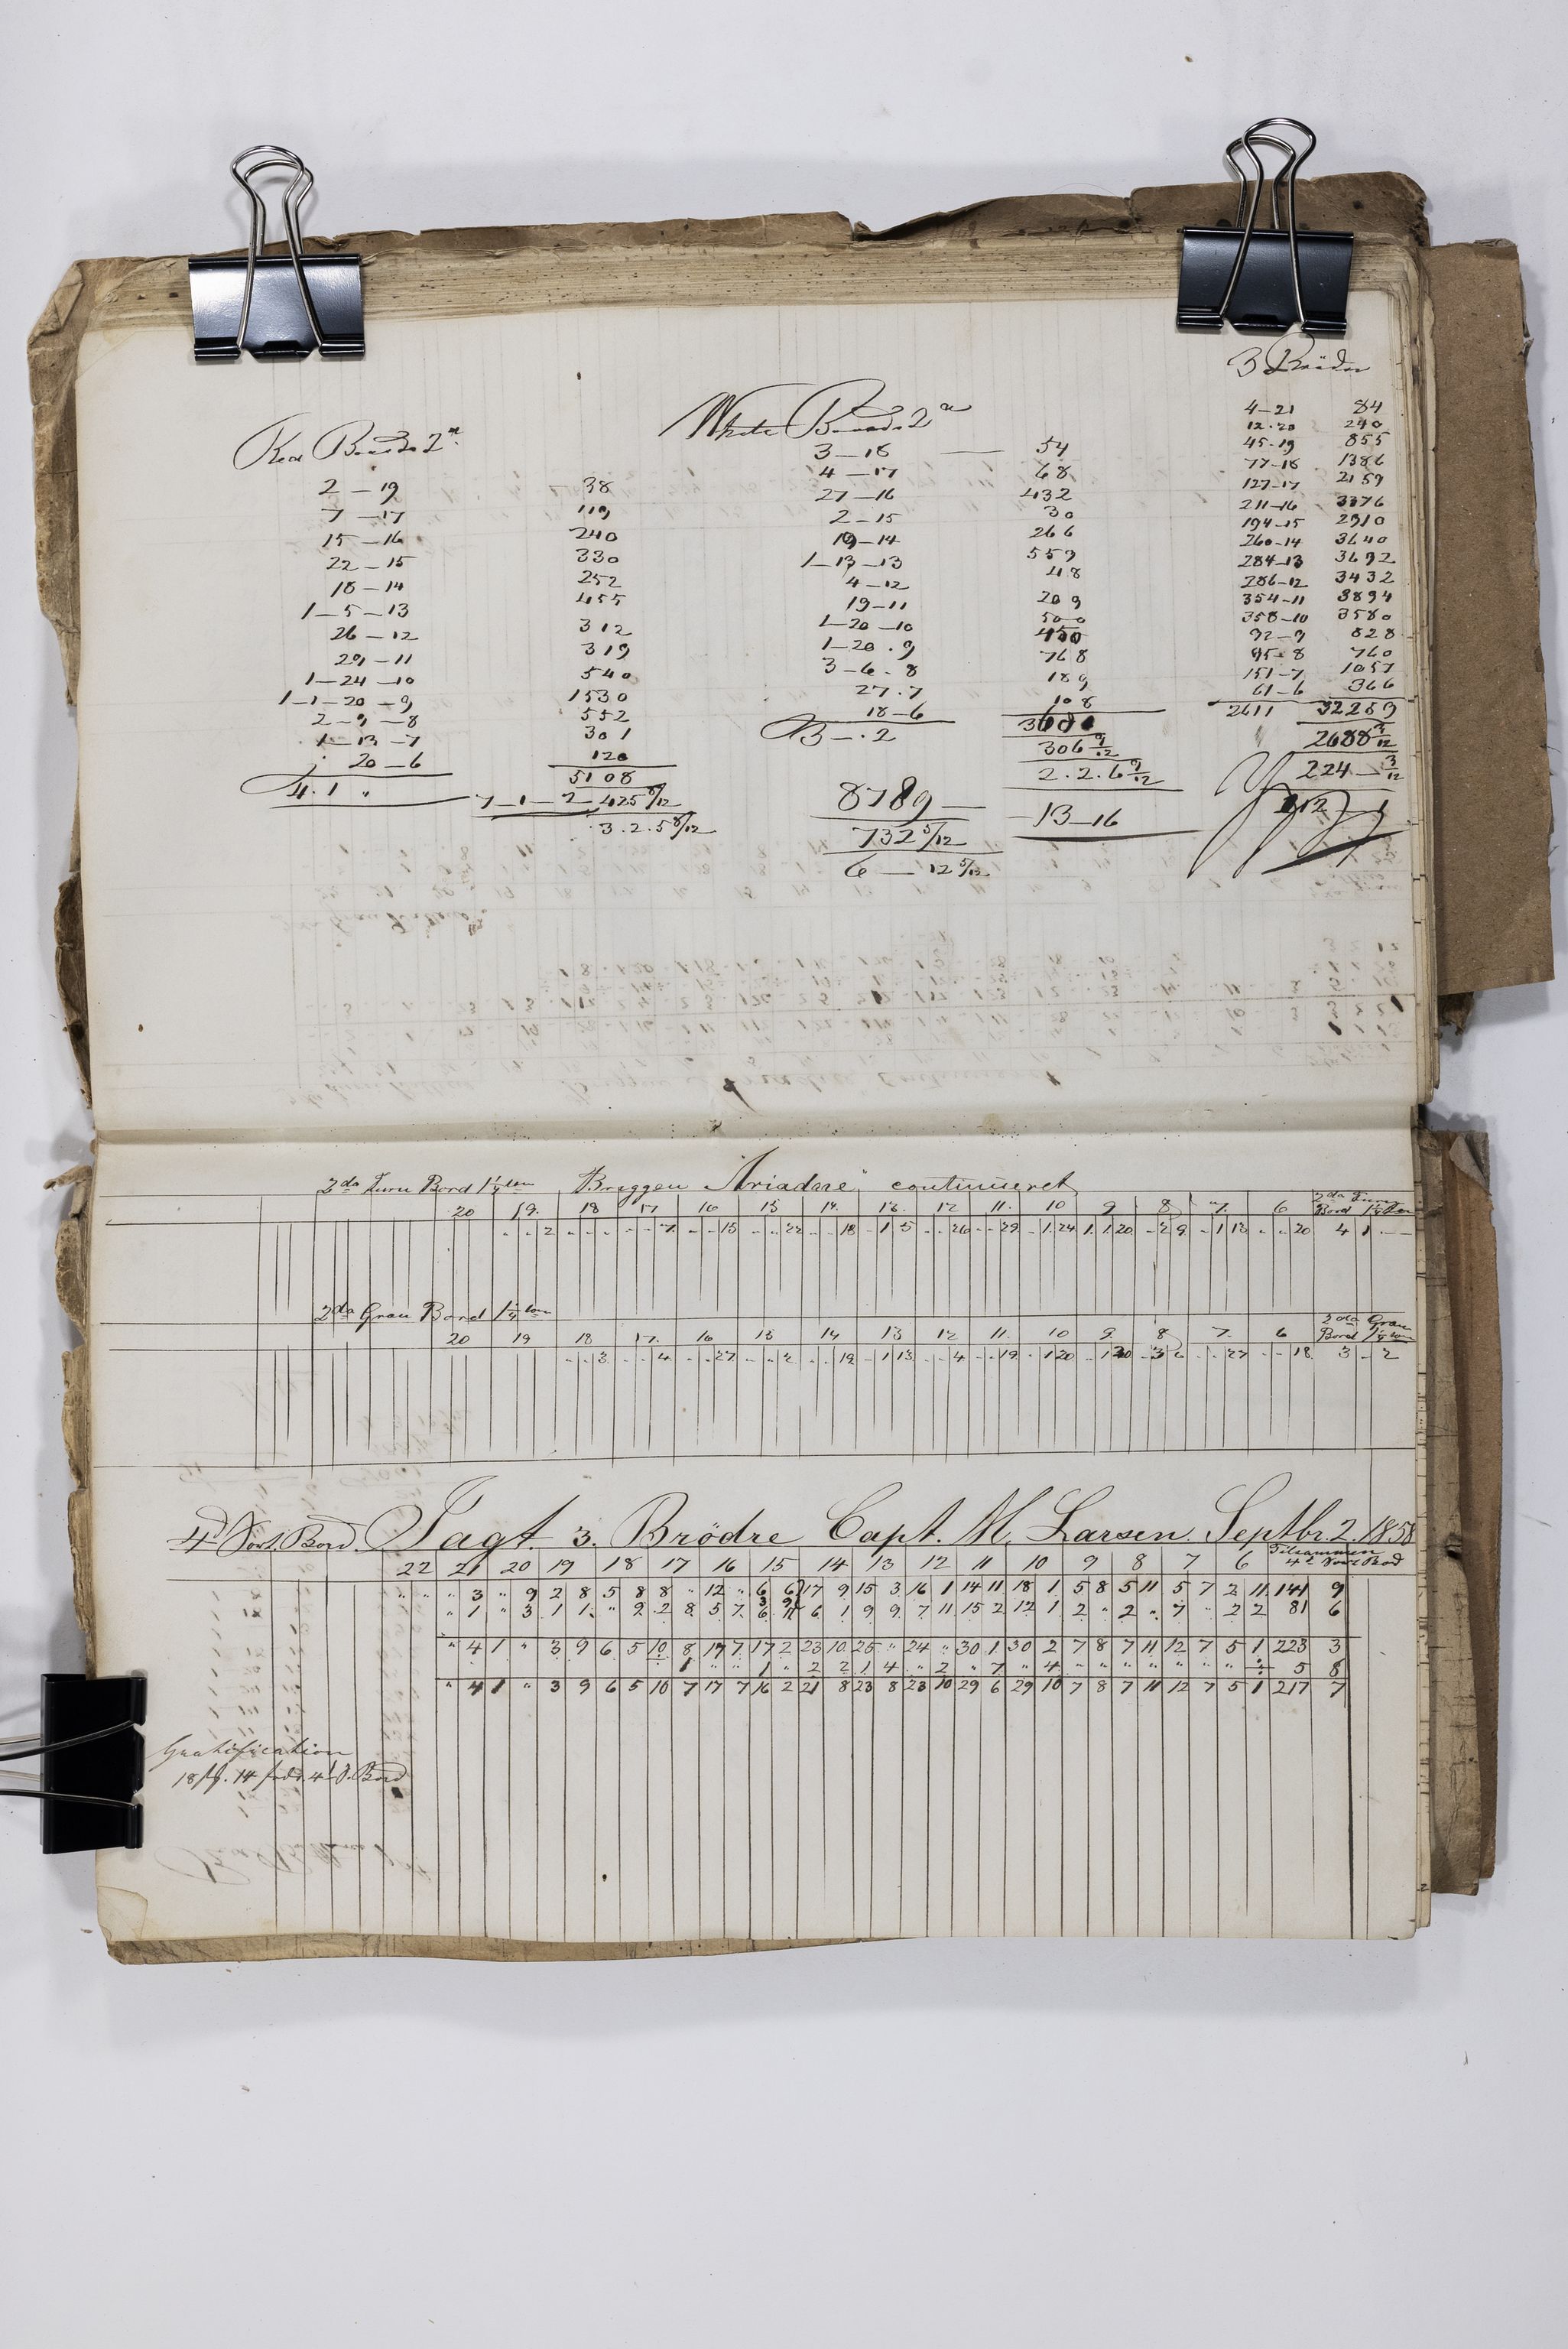 3 Brödre
Red Boards 2ᵃ
2 — 19 38
7 — 17 119
15 — 16 240
22 — 15 330
18 — 14 252
1 — 5 — 13 455
26 — 12 312
29 — 11 319
1 — 24 — 10 540
1 — 1 — 20 — 9 1530
2 — 9 — 8 552
1 — 13 — 7 301
20 — 6 120
4. 1 " 5108
7 — 1 — 2 — 425 8/12
3. 2. 5 8/12
White Boards 2ᵃ
3 — 18 — 54
4 — 17 68
27 — 16 432
2 — 15 30
19 — 14 266
1 — 13 — 13 559
4 — 12 48
19 — 11 209
1 — 20 — 10 500
1 — 20 . 9 450
3 — 6 . 8 768
27 . 7 189
18 — 6 108
3 — . 2
306 9/12
2 . 2 . 6 9/12
8789 —
732 5/12
6 — 12 5/12
13 — 16
4 — 21 84
12 . 20 240
45 . 19 855
77 — 18 1386
127 — 17 2159
211 — 16 3376
194 — 15 2910
260 — 14 3640
284 — 13 3692
286 — 12 3432
354 — 11 3894
358 — 10 3580
92 — 9 828
95 . 8 760
151 — 7 1057
61 — 6 366
2611 32259
2688 3/12
224 — 3/12
2da Furu Bord 1¼ tom Briggen "Ariadne" continueret
20 19. 18 17 16 15 14. 13. 12 11. 10 9 8 7. 6 2da Furu Bord 1¼ tom
" " 2 " " " " " 7 " " 15 " " 22 " " 18 " 1 5 " " 26 " " 29 " 1 24 1 1 20 " 2 9 " 1 13 " " 20 4 1 "
2da Gran Bord 1¼ tom
20 19 18 17. 16 15 14 13 12 11. 10 9. 8 7. 6 2da Gran Bord 1¼ tom
" " 3 " " 4 " " 27 " " 2 " " 19 " 1 13 " " 4 " " 19 " 1 20 " 1 20 " 3 6 " " 27 " " 18 3 " 2
Jagt. 3. Brödre Capt. M. Larsen. Septbr. 2. 1858
22 21 20 19 18 17 16 15 14 13 12 11 10 9 8 7 6 Tilsammen
" " " 3 " 9 2 8 5 8 8 " 12 " 6 6 17 9 15 3 16 1 14 11 18 1 5 8 5 11 5 7 2 11 141 9
" 1 " 3 1 1 " 9 2 8 5 7 6 6 1 9 9 7 11 15 2 12 1 2 " 2 " 7 " 2 2 81 6
" 4 1 " 3 9 6 5 10 8 17 7 17 2 23 10 25 " 24 " 30 1 30 2 7 8 7 11 12 7 5 1 223 3
1 " " 1 " 2 2 1 4 " 2 " 7 " 4 " " " " " " " " 5 8
" 4 1 " 3 9 6 5 10 7 17 7 16 2 21 8 23 8 23 10 29 6 29 10 7 8 7 11 12 7 5 1 217 7
Gratification